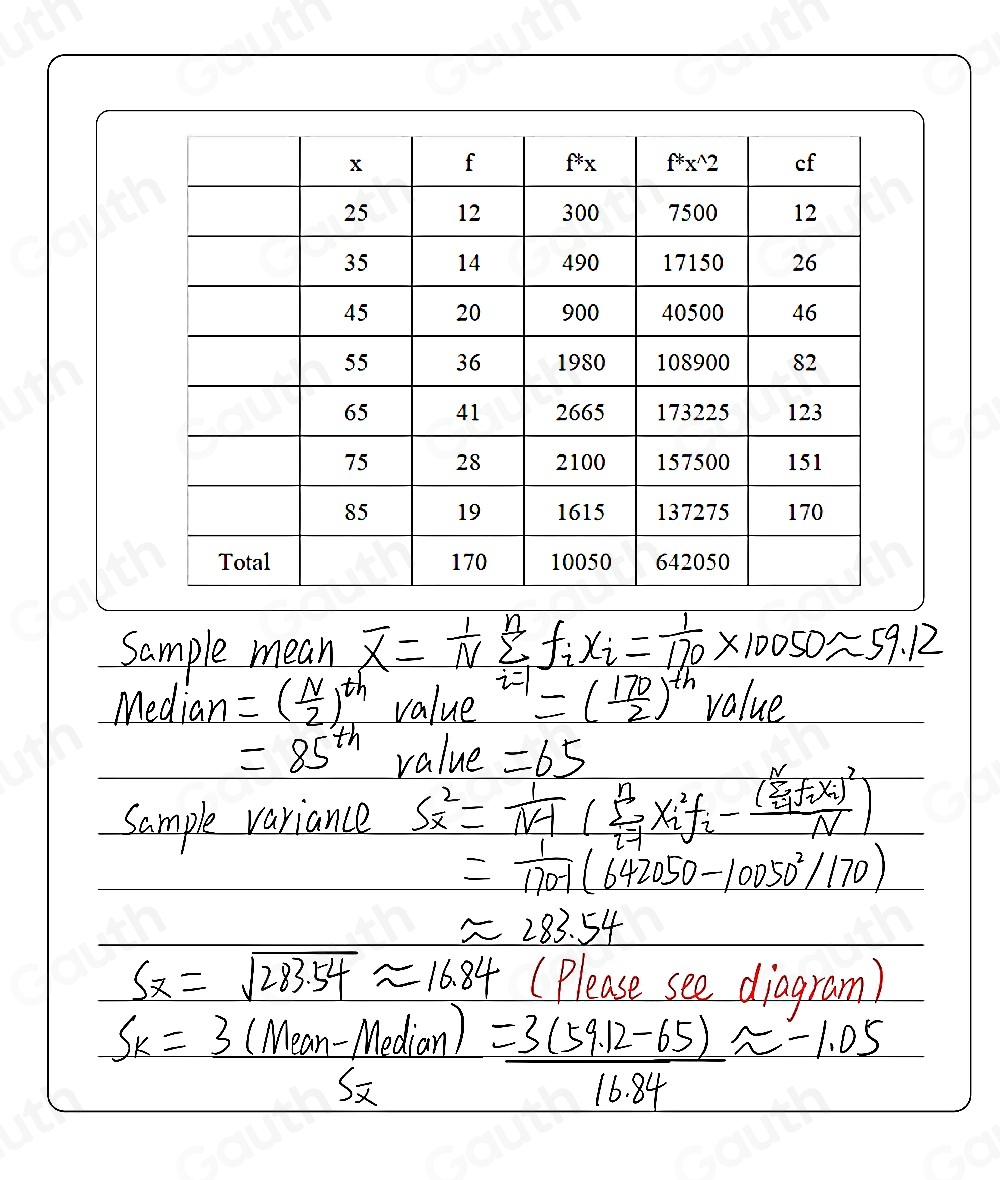 x f f*x f*x^2 cf
25 12 300 7500 12
35 14 490 17150 26
45 20 900 40500 46
55 36 1980 108900 82
65 41 2665 173225 123
75 28 2100 157500 151
85 19 1615 137275 170
Total 170 10050 642050
Sample mean x̄ = 1/N Σ_{i=1}^{n} f_i x_i = 1/170 × 10050 ≈ 59.12
Median = (N/2)^th value = (170/2)^th value
= 85^th value = 65
Sample variance S_x̄^2 = 1/(N-1) (Σ_{i=1}^{n} x_i^2 f_i - (Σ_{i=1}^{N} f_i x_i)^2/N)
= 1/(170-1) (642050 - 10050^2/170)
≈ 283.54
S_x̄ = √283.54 ≈ 16.84 (Please see diagram)
S_K = 3(Mean-Median)/S_x̄ = 3(59.12-65)/16.84 ≈ -1.05
Gauth